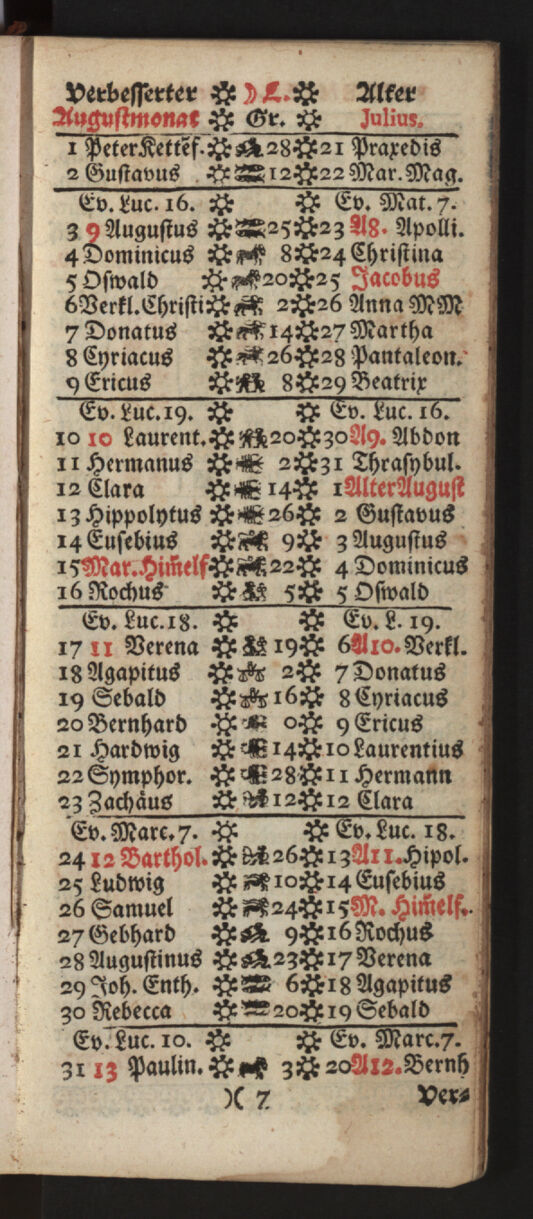 Verbesserter ☽ L. Alter
Augustmonat Gr. Julius.
1 Peter Kettēf. 28 21 Praxedis
2 Gustavus 12 22 Mar. Mag.
Ev. Luc. 16. Ev. Mat. 7.
3 9 Augustus 25 23 A8. Apolli.
4 Dominicus 8 24 Christina
5 Oswald 20 25 Jacobus
6 Verkl. Christi 2 26 Anna MM
7 Donatus 14 27 Martha
8 Cyriacus 26 28 Pantaleon.
9 Ericus 8 29 Beatrix
Ev. Luc. 19. Ev. Luc. 16.
10 10 Laurent. 20 30 A9. Abdon
11 Hermanus 2 31 Thrasybul.
12 Clara 14 1 Alter August
13 Hippolytus 26 2 Gustavus
14 Eusebius 9 3 Augustus
15 Mar. Him̄elf 22 4 Dominicus
16 Rochus 5 5 Oswald
Ev. Luc. 18. Ev. L. 19.
17 11 Verena 19 6 A10. Verkl.
18 Agapitus 2 7 Donatus
19 Sebald 16 8 Cyriacus
20 Bernhard 0 9 Ericus
21 Hardwig 14 10 Laurentius
22 Symphor. 28 11 Hermann
23 Zachäus 12 12 Clara
Ev. Marc. 7. Ev. Luc. 18.
24 12 Barthol. 26 13 A11. Hipol.
25 Ludwig 10 14 Eusebius
26 Samuel 24 15 M. Him̄elf.
27 Gebhard 9 16 Rochus
28 Augustinus 23 17 Verena
29 Joh. Enth. 6 18 Agapitus
30 Rebecca 20 19 Sebald
Ev. Luc. 10. Ev. Marc. 7.
31 13 Paulin. 3 20 A12. Bernh
)( 7 Ver⸗